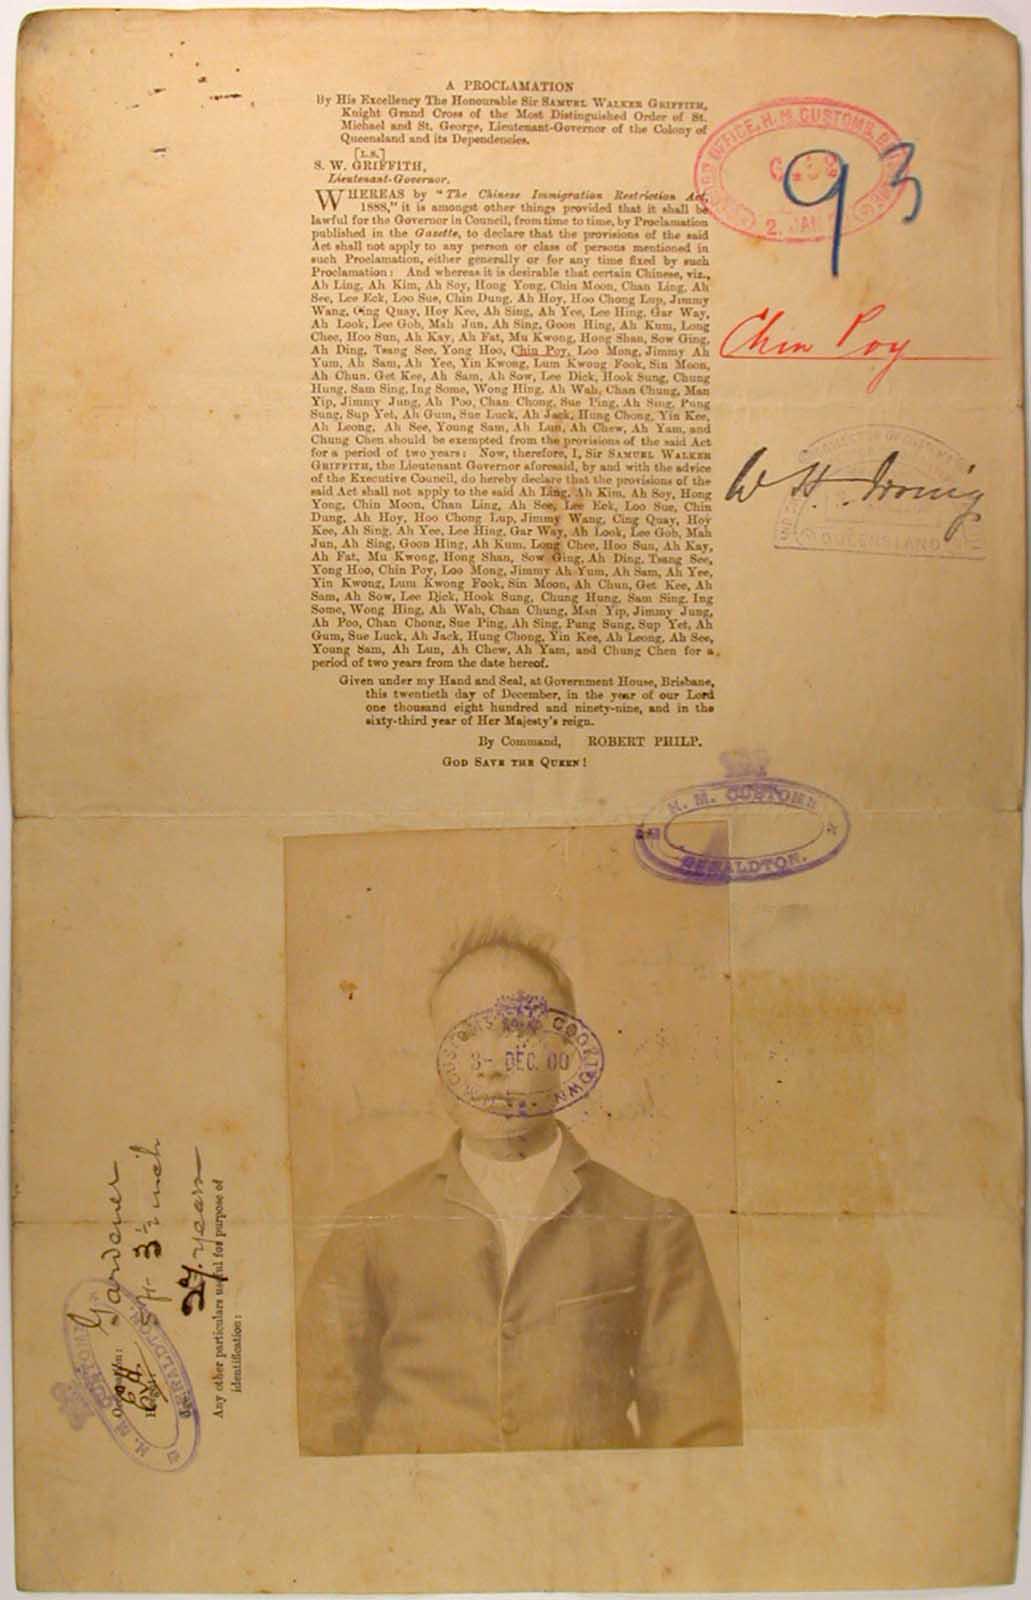 A PROCLAMATION
By His Excellency The Honourable Sir SAMUEL WALKER GRIFFITH,
Knight Grand Cross of the Most Distinguished Order of St.
Michael and St. George, Lieutenant-Governor of the Colony of
Queensland and its Dependencies.
[L.S.]
S. W. GRIFFITH,
Lieutenant-Governor.
WHEREAS by "The Chinese Immigration Restriction Act,
1888," it is amongst other things provided that it shall be
lawful for the Governor in Council, from time to time, by Proclamation
published in the Gazette, to declare that the provisions of the said
Act shall not apply to any person or class of persons mentioned in
such Proclamation, either generally or for any time fixed by such
Proclamation: And whereas it is desirable that certain Chinese, viz.,
Ah Ling, Ah Kim, Ah Soy, Hong Yong, Chin Moon, Chan Ling, Ah
See, Lee Eck, Loo Sue, Chin Dung, Ah Hoy, Hoo Chong Lup, Jimmy
Wang, Cing Quay, Hoy Kee, Ah Sing, Ah Yee, Lee Hing, Gar Way,
Ah Look, Lee Gob, Mah Jun, Ah Sing, Goon Hing, Ah Kum, Long
Chee, Hoo Sun, Ah Kay, Ah Fat, Mu Kwong, Hong Shan, Sow Ging,
Ah Ding, Tsang See, Yong Hoo, Chin Poy, Loo Mong, Jimmy Ah
Yum, Ah Sam, Ah Yee, Yin Kwong, Lum Kwong Fook, Sin Moon,
Ah Chun, Get Kee, Ah Sam, Ah Sow, Lee Dick, Hook Sung, Chung
Hung, Sam Sing, Ing Some, Wong Hing, Ah Wah, Chan Chung, Man
Yip, Jimmy Jung, Ah Poo, Chan Chong, Sue Ping, Ah Sing, Pung
Sung, Sup Yet, Ah Gum, Sue Luck, Ah Jack, Hung Chong, Yin Kee,
Ah Leong, Ah See, Young Sam, Ah Lun, Ah Chew, Ah Yam, and
Chung Chen should be exempted from the provisions of the said Act
for a period of two years: Now, therefore, I, Sir SAMUEL WALKER
GRIFFITH, the Lieutenant Governor aforesaid, by and with the advice
of the Executive Council, do hereby declare that the provisions of the
said Act shall not apply to the said Ah Ling, Ah Kim, Ah Soy, Hong
Yong, Chin Moon, Chan Ling, Ah See, Lee Eck, Loo Sue, Chin
Dung, Ah Hoy, Hoo Chong Lup, Jimmy Wang, Cing Quay, Hoy
Kee, Ah Sing, Ah Yee, Lee Hing, Gar Way, Ah Look, Lee Gob, Mah
Jun, Ah Sing, Goon Hing, Ah Kum, Long Chee, Hoo Sun, Ah Kay,
Ah Fat, Mu Kwong, Hong Shan, Sow Ging, Ah Ding, Tsang See,
Yong Hoo, Chin Poy, Loo Mong, Jimmy Ah Yum, Ah Sam, Ah Yee,
Yin Kwong, Lum Kwong Fook, Sin Moon, Ah Chun, Get Kee, Ah
Sam, Ah Sow, Lee Dick, Hook Sung, Chung Hung, Sam Sing, Ing
Some, Wong Hing, Ah Wah, Chan Chung, Man Yip, Jimmy Jung,
Ah Poo, Chan Chong, Sue Ping, Ah Sing, Pung Sung, Sup Yet, Ah
Gum, Sue Luck, Ah Jack, Hung Chong, Yin Kee, Ah Leong, Ah See,
Young Sam, Ah Lun, Ah Chew, Ah Yam, and Chung Chen for a
period of two years from the date hereof.
Given under my Hand and Seal, at Government House, Brisbane,
this twentieth day of December, in the year of our Lord
one thousand eight hundred and ninety-nine, and in the
sixty-third year of Her Majesty's reign.
By Command, ROBERT PHILP.
GOD SAVE THE QUEEN!
OFFICE, H. M. CUSTOMS,
2. JAN
93
Chin Poy
W H Irving
QUEENSLAND
H. M. CUSTOMS
GERALDTON.
H. M. CUSTOMS COOKTOWN
3- DEC. 00
Occupation: Gardener
5 ft 3½ inch
27 years
Any other particulars useful for purpose of
identification:
H. M. CUSTOMS
GERALDTON.